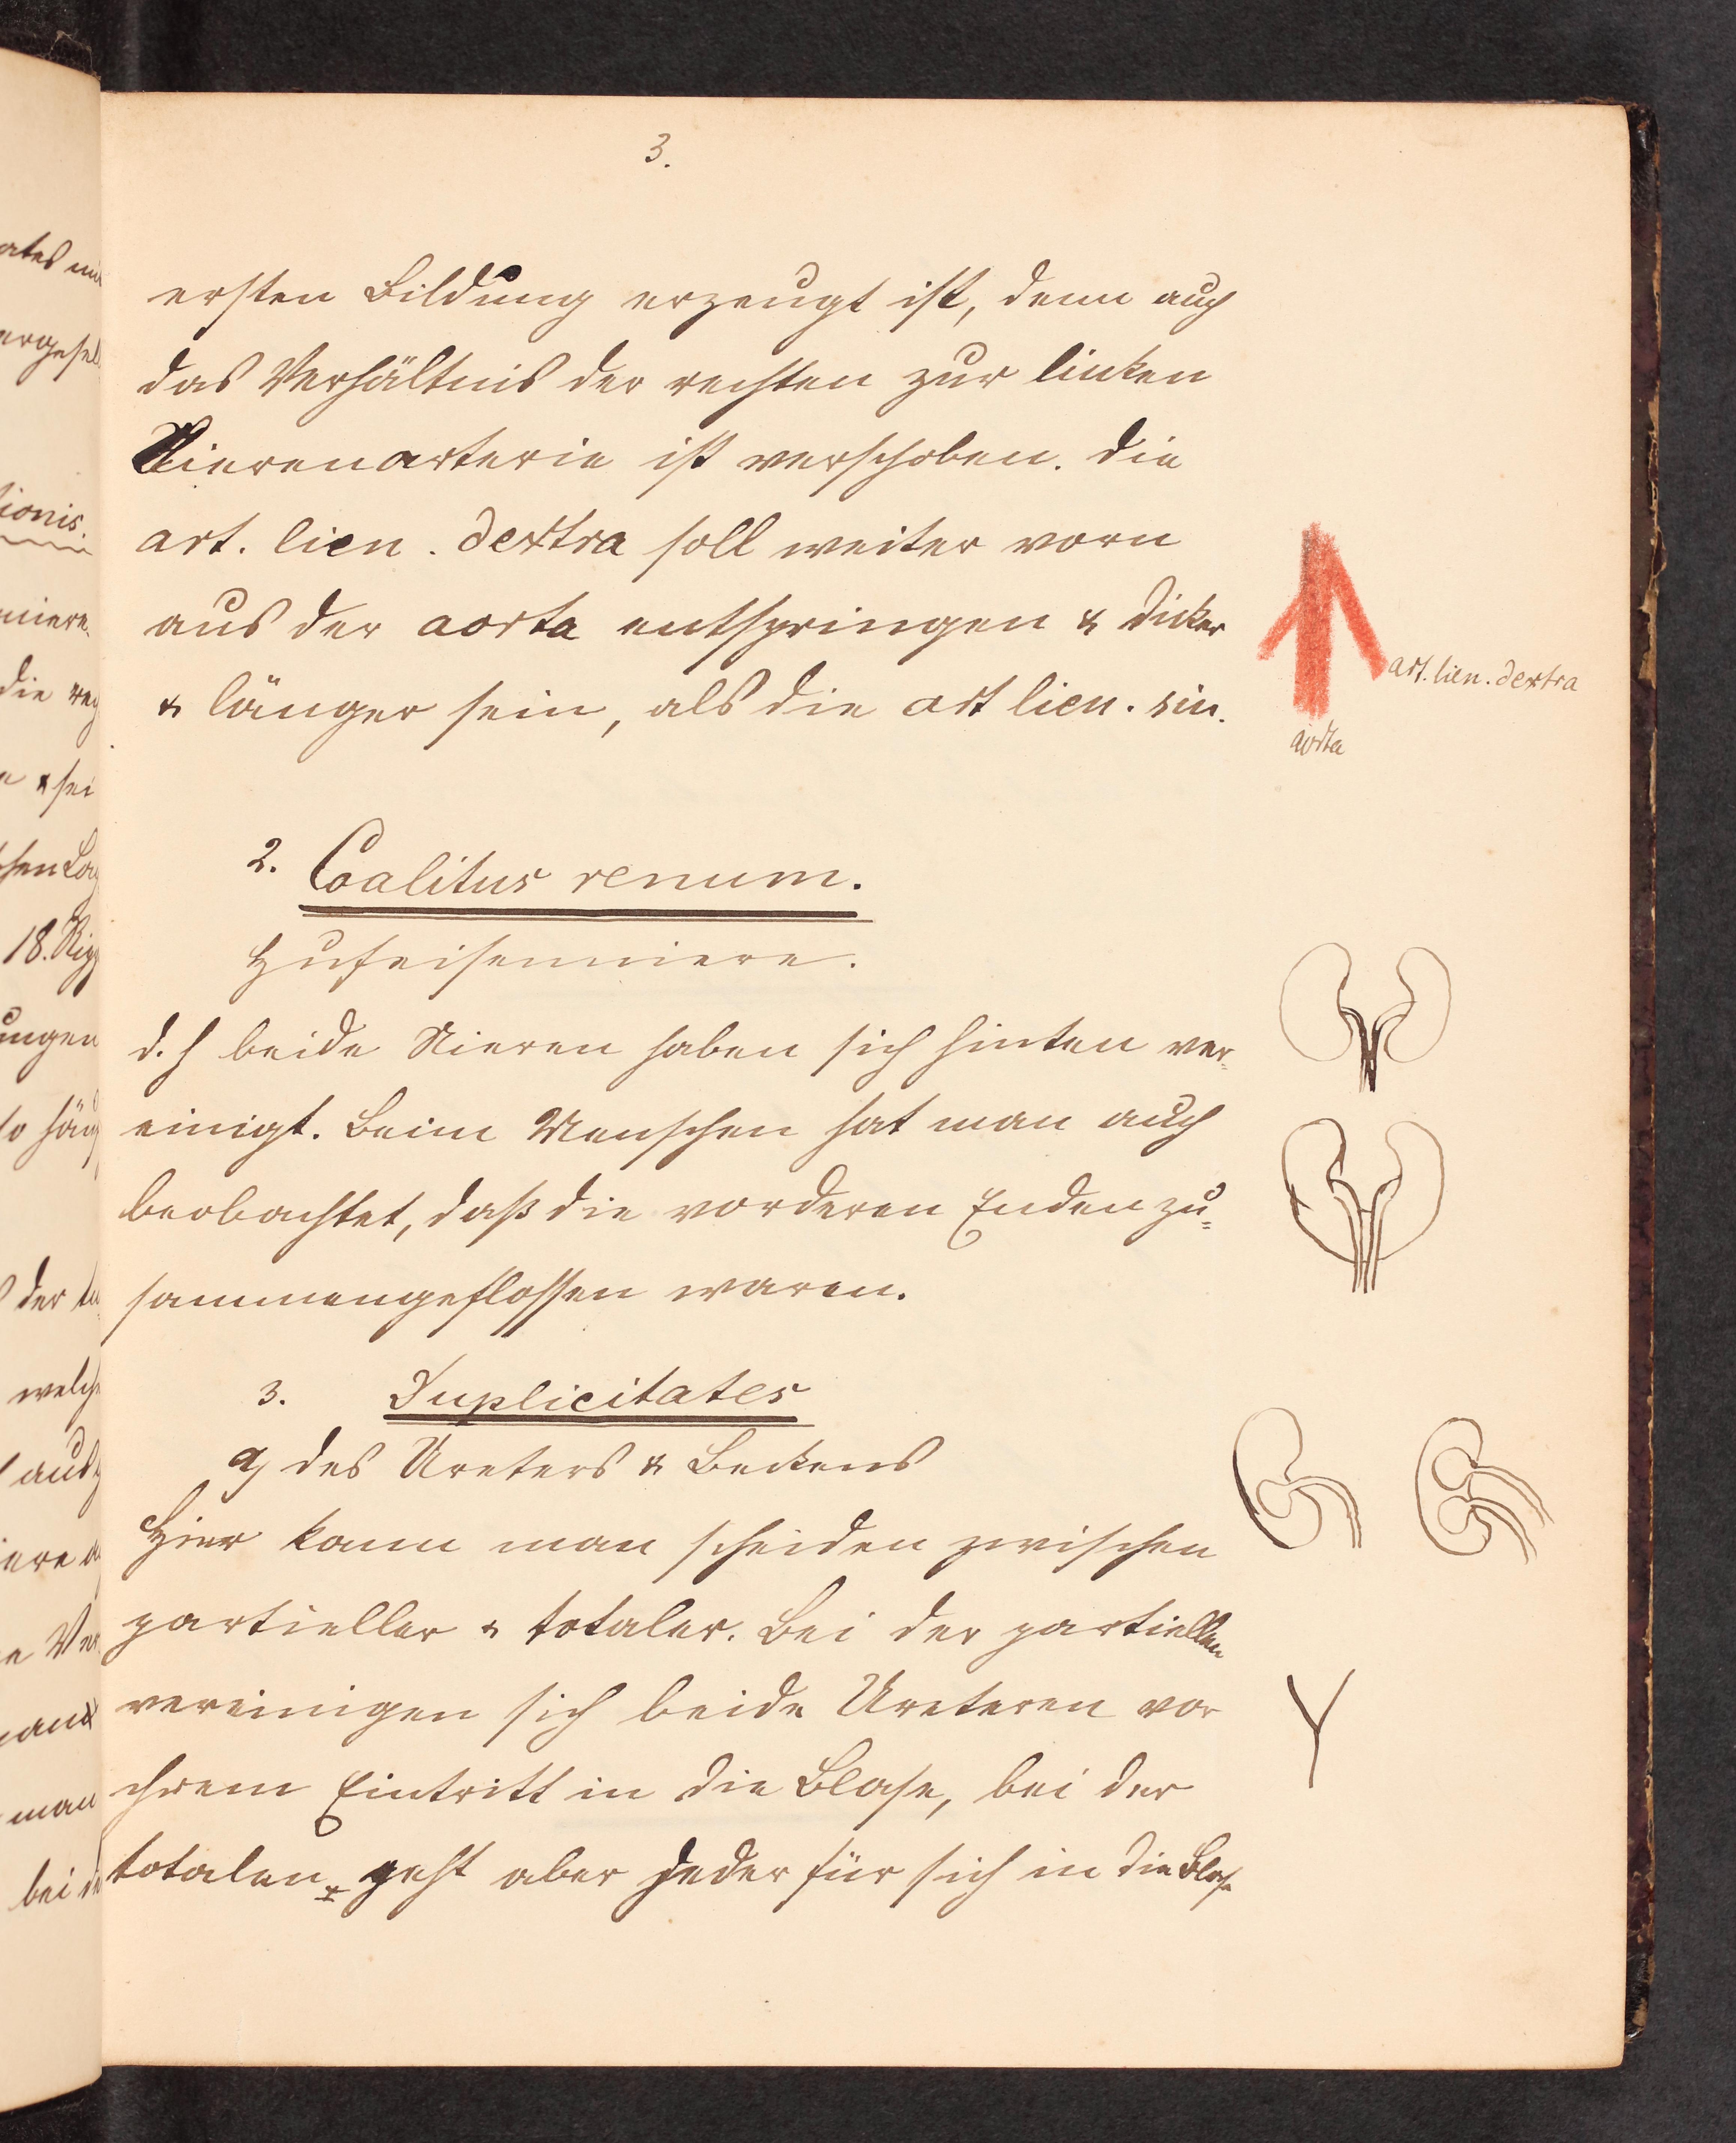 3.
ersten Bildung erzeugt ist, denn auch
das Verhältnis der rechten zur linken
Nierenarterie ist verschoben. Die
art. lien. dextra soll weiter vorn
aus der aorta entspringen & dicker
& länger sein, als die art lien. sin.
art. lien. dextra
aorta
2. Coalitus renum.
Hufeisenniere.
d. h beide Nieren haben sich hinten ver-
einigt. Beim Menschen hat man auch
beobachtet, daß die vorderen Enden zu-
sammengeflossen waren.
3. Duplicitates
a) des Ureters & Beckens
Hier kann man scheiden zwischen
partieller & totaler. Bei der partiellen
vereinigen sich beide Ureteren vor
ihrem Eintritt in die Blase, bei der
totalen geht aber jeder für sich in die Blase
ionis.
die
18.
ungen
der
welch
man
bei